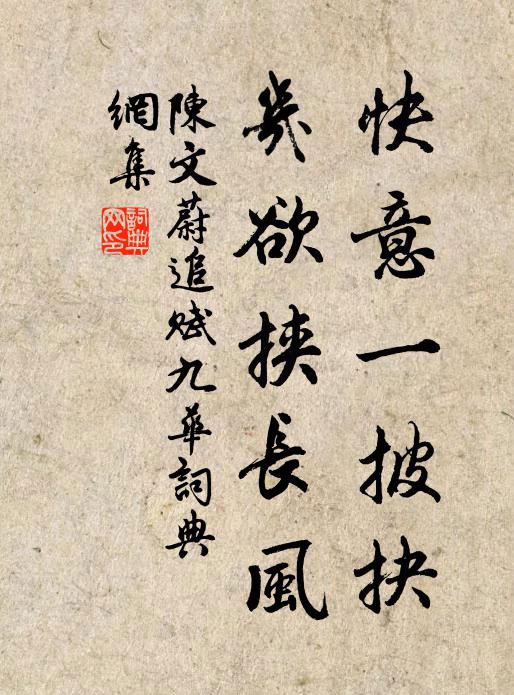 快意一披抉
幾欲挾長風
陳文蔚追賦九華詞典
網集
詞典
網印